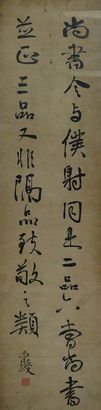 尚書令与僕射同是二品六曹尚書
並正三品又非隔品致敬之類